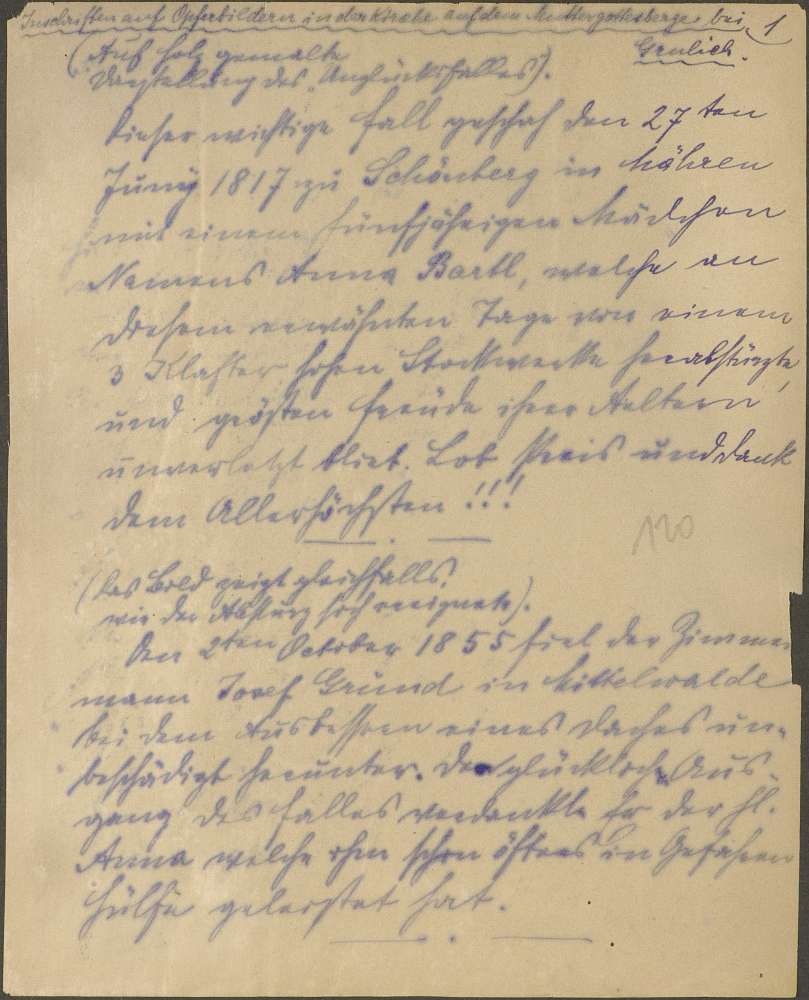 Inschriften auf Opferbildern in der Kirche auf dem Muttergottesberge bei 1
Grulich.
(Auf Holz gemalte
Darstellung des Unglücksfalles).
Dieser wichtige Fall geschah den 27ten
Juny 1817 zu Schönberg in Mähren
mit einem fünfjährigen Mädchen
Namens Anna Bartl, welche an
diesem erwähnten Tage von einem
3 Klafter hohen Stockwerke herabstürzte
und grösten Freude ihrer Aeltern
unverletzt blieb. Lob Preis und Dank
dem Allerhöchsten!!!
120
(Das Bild zeigt gleichfalls,
wie der Absturz sich ereignete).
Den 2ten October 1855 fiel der Zimmer
mann Josef Gründ in Mittelwalde
bei dem Ausbessern eines Daches un-
beschädigt herunter. Den glücklichen Aus-
gang des Falles verdankte Er der hl.
Anna welche ihm schon öfters in Gefahren
Hülfe geleistet hat.